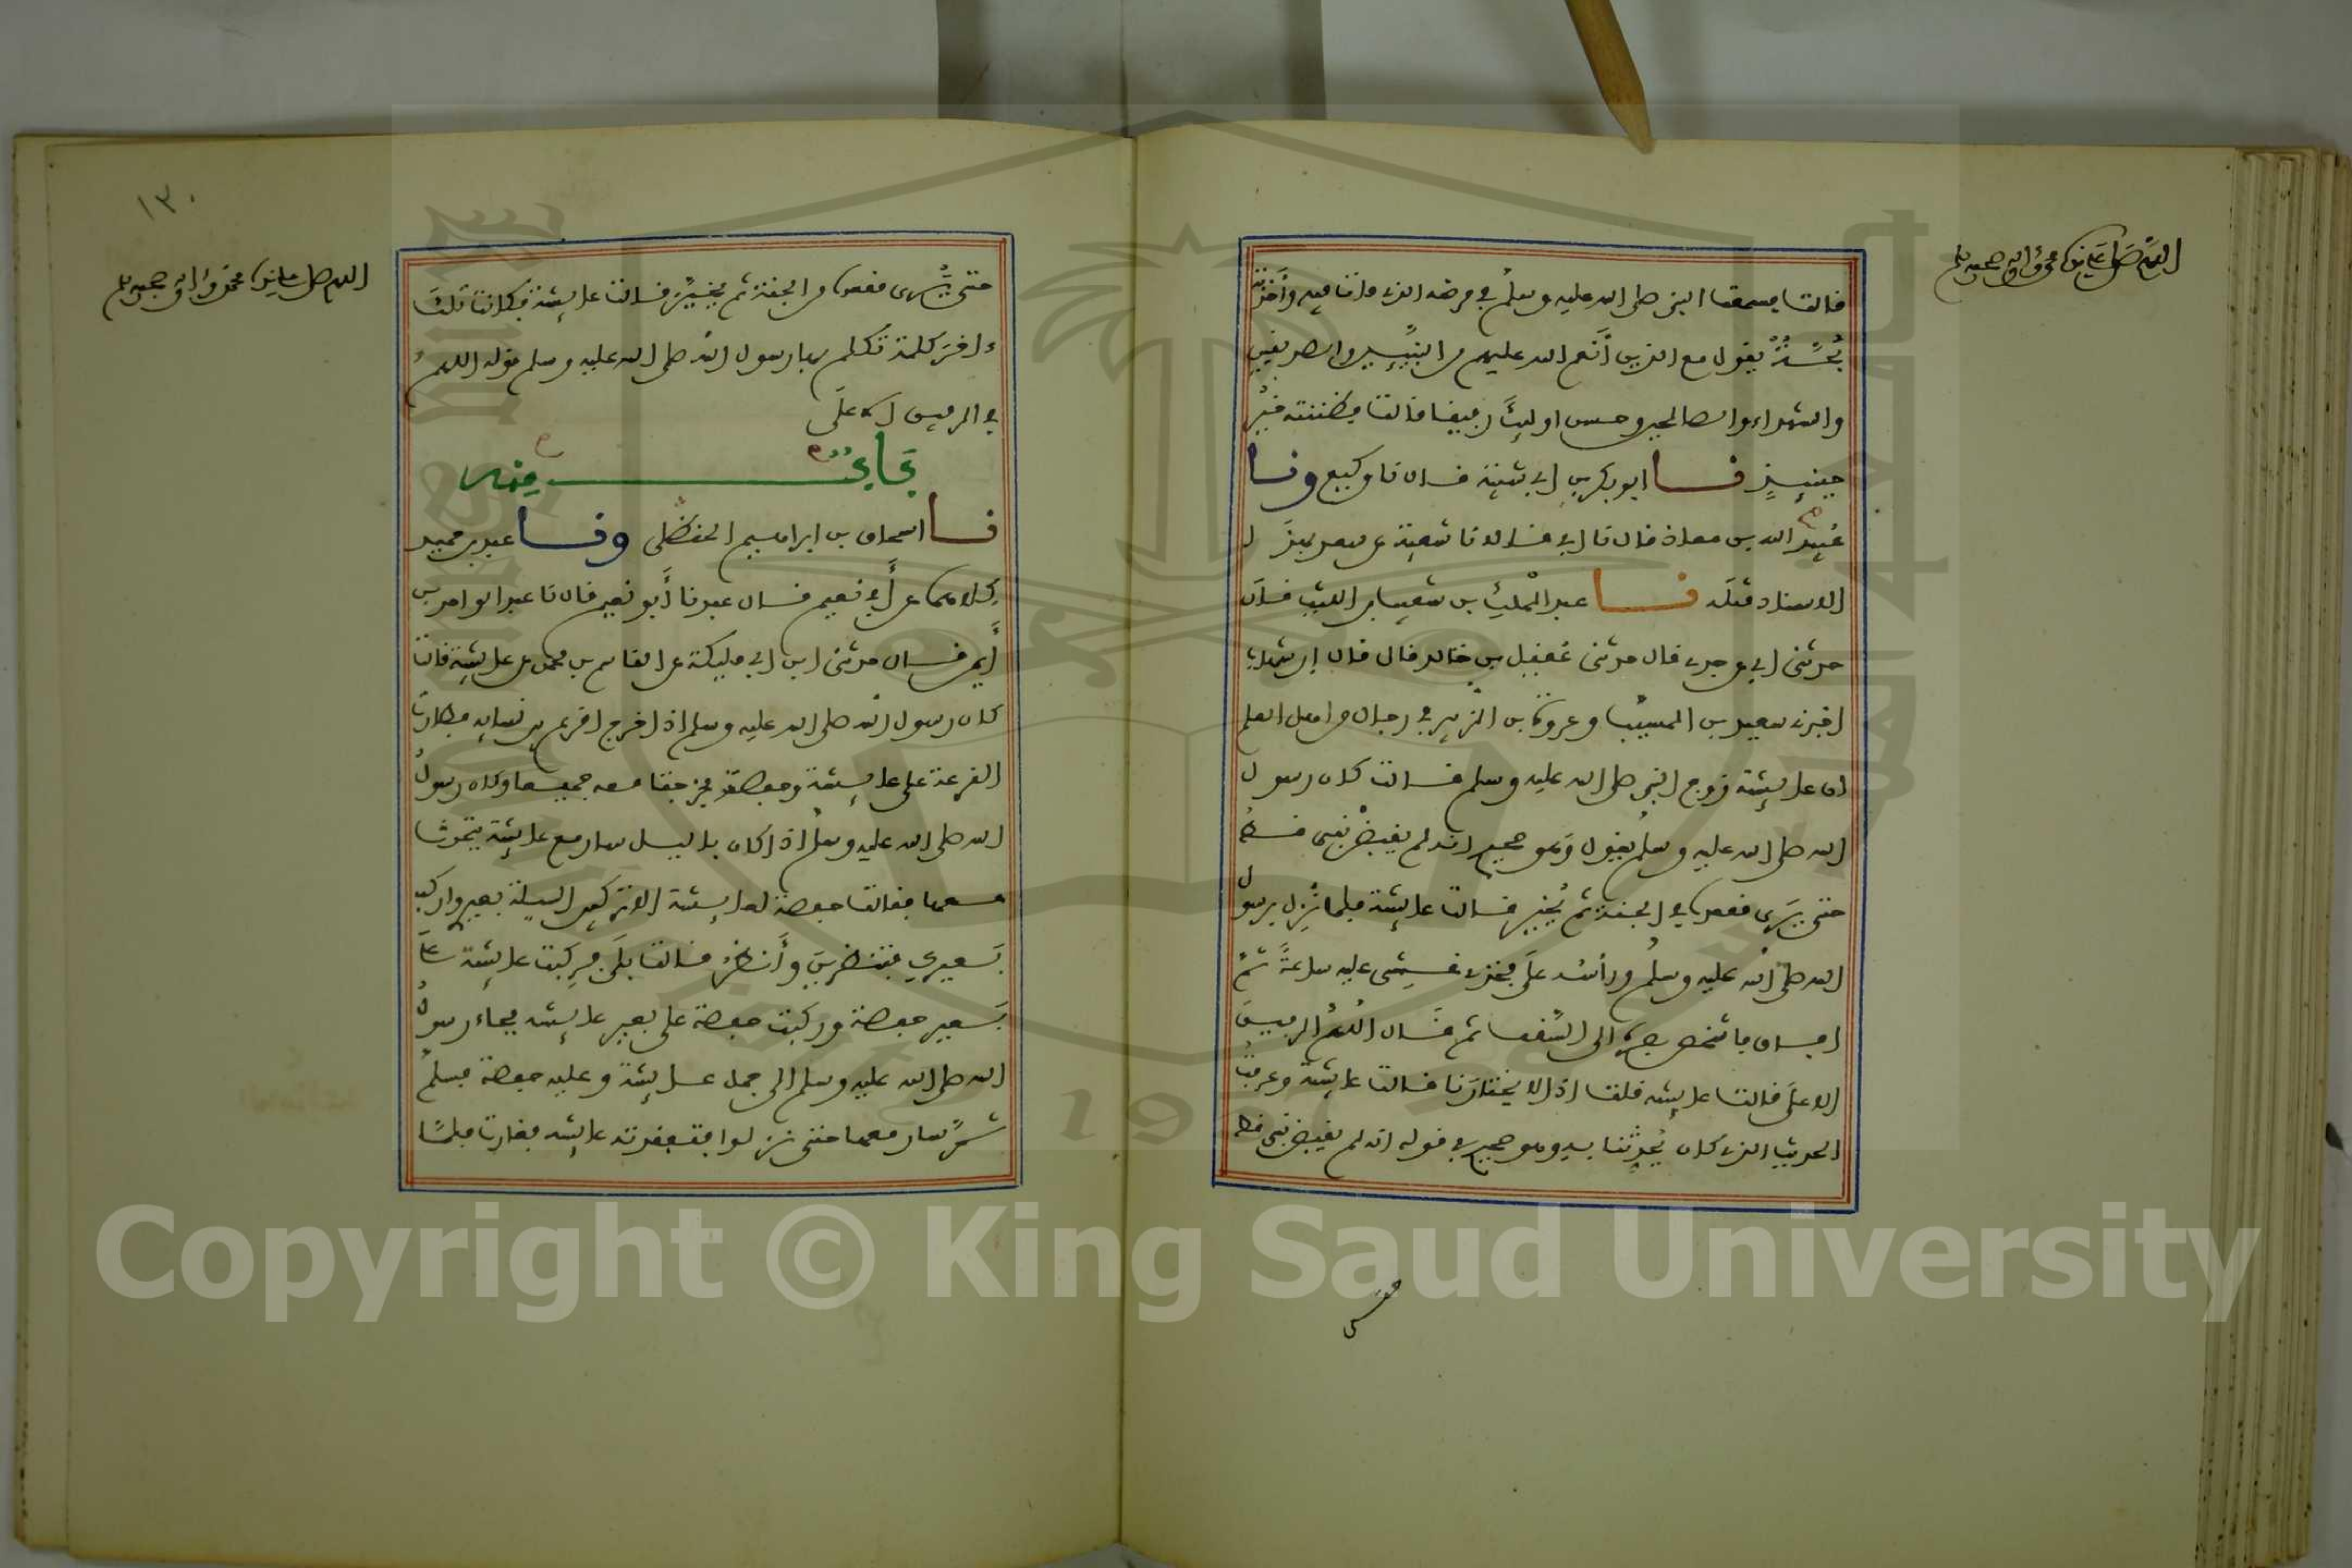 اللهم صل على سيدنا محمد وآله وصحبه وسلم
قالت فسمعت النبي صلى الله عليه وسلم في مرضه الذي مات فيه وأخذته
بُحَّةٌ يقول مع الذين أنعم الله عليهم من النبيين والصديقين
والشهداء والصالحين وحسن اولئك رفيقا قالت فظننته خُيِّر
حينئذٍ نا ابو بكر بن ابي شيبة قال نا وكيع ونا
عبيد الله بن معاذ قال نا ابي قالا نا شعبة عن سعد بهذا
الاسناد مثله نا عبد الملك بن شعيب بن الليث قال
حدثني ابي عن جدي قال حدثني عُقيل بن خالد قال قال ابن شهاب
اخبرني سعيد بن المسيّب وعروة بن الزبير في رجال من اهل العلم
ان عائشة زوج النبي صلى الله عليه وسلم قالت كان رسول
الله صلى الله عليه وسلم يقول وهو صحيح انه لم يقبض نبي قط
حتى يرى مقعده في الجنة ثم يُخير قالت عائشة فلما نزل برسول
الله صلى الله عليه وسلم ورأسه على فخذي غشي عليه ساعةً ثمّ
افاق فاشخص بصره الى السقف ثم قال اللهم الرفيق
الاعلى قالت عائشة قلت اذا لا يختارنا قالت عائشة وعرفت
الحديث الذي كان يُحدِّثنا به وهو صحيح في قوله انه لم يقبض نبي قط
حتى
١٣٠
اللهم صل على سيدنا محمد وآله وصحبه وسلم
حتى يُرى مقعده من الجنة ثم يخيَّر قالت عائشة فكانت تلك
ءاخر كلمة تكلم بها رسول الله صلى الله عليه وسلم قوله اللهم
في الرفيق الاعلى
نا اسحاق بن ابراهيم الحنظلي ونا عبد بن حميد
كلاهما عن أبي نعيم قال عبد نا أبو نعيم قال نا عبد الواحد بن
أيمن قال حدثني ابن ابي مليكة عن القاسم بن محمد عن عائشة قالت
كان رسول الله صلى الله عليه وسلم اذا خرج اقرع بين نسائه فطارت
القرعة على عائشة وحفصة فخرجتا معه جميعا وكان رسول
الله صلى الله عليه وسلم اذا كان بالليل سار مع عائشة يتحدث
معها فقالت حفصة لعائشة الا تركبين الليلة بعيري واركب
بعيرك فتنظرين وأنظر قالت بلى فركبت عائشة على
بعير حفصة وركبت حفصة على بعير عائشة فجاء رسول
الله صلى الله عليه وسلم الى جمل عائشة وعليه حفصة فسلم
ثمّ سار معها حتى نزلوا فافتقدته عائشة فغارت فلمّا
Copyright © King Saud University